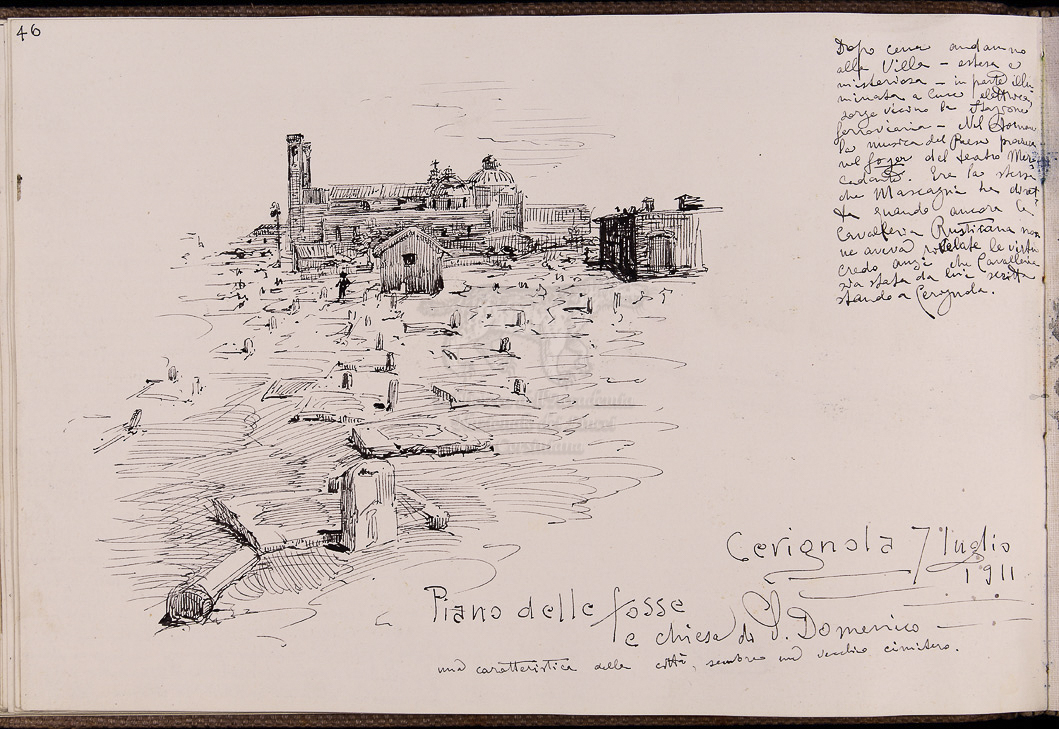 46
Dopo cena andammo
alla Villa – estesa e
misteriosa – in parte illu
minata a luce elettrica,
sorge vicino la Stazione
ferroviaria –
la musica del Paese
nel foyer del teatro Mer
cadante. Era la stessa
che Mascagni ha diret
ta quando ancora la
Cavalleria Rusticana non
ne aveva rivelate le virtù
credo anzi che Cavalleria
sia stata da lui scritta
stando a Cerignola.
Cerignola 7 luglio
1911
Piano delle fosse
e chiesa di S. Domenico
una caratteristica della città, sembra un vecchio cimitero.